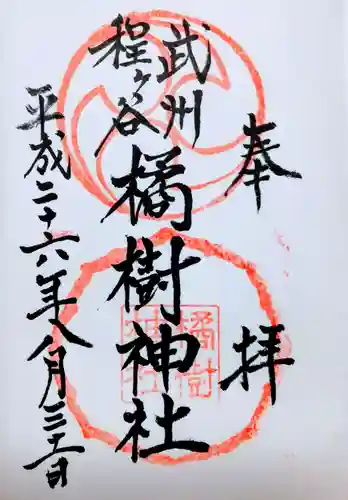 奉拝
武州
程ヶ谷
橘樹神社
平成二十六年八月三十一日
橘樹
神社